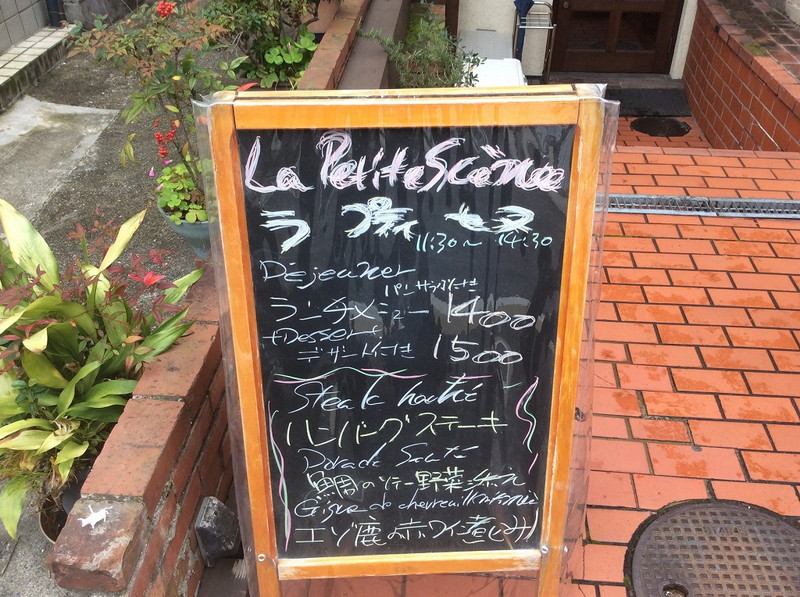 La Petite Scène
ラ プティ セヌ
11:30〜 14:30
Déjeuner
パン サラダ付き
ランチメニュー 1400
+Dessert
デザート付き 1500
Steak haché
ハンバーグステーキ
Dorade Sauté
鯛のソテー野菜添え
Gigue de chevreuil
エゾ鹿の赤ワイン煮込み